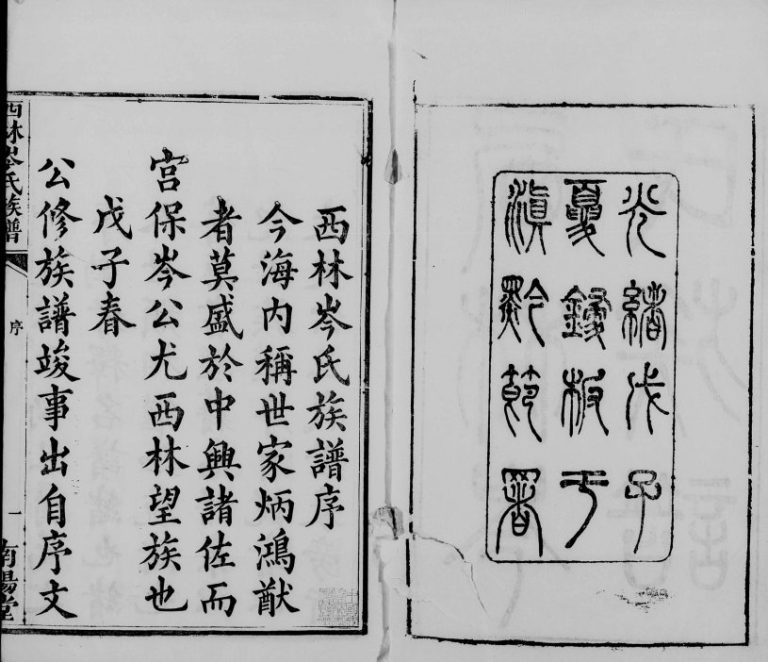 光緒戊子
夏鋟板于
滇黔節署
西林岑氏族譜序
今海內稱世家炳鴻猷
者莫盛於中興諸佐而
宮保岑公尤西林望族也
戊子春
公修族譜竣事出自序文
西林岑氏族譜
序
一
南陽堂